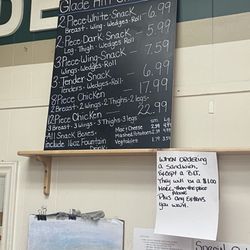 DE
2 Piece White Snack - 6.99
Breast - Wing - Wedges - Roll
2 Pc. Dark Snack - 5.99
Leg - Thigh - Wedges - Roll
3 Piece Wing Snack - 7.59
Wings - Wedges - Roll
3 Tender Snack - 6.99
Tenders - Wedges - Roll
8 Piece Chicken - 17.99
2 Breast - 2 Wings - 2 Thighs - 2 legs
12 Piece Chicken - 22.99
3 Breast - 3 Wings - 3 Thighs - 3 legs
All Snack Boxes
Include 16oz Fountain
Mac & Cheese
Mashed Potatoes
Vegetables
When ordering
a sandwich,
Except a BLT,
They will be a $1.00
more, than the price
above
Plus any Extras
you want.